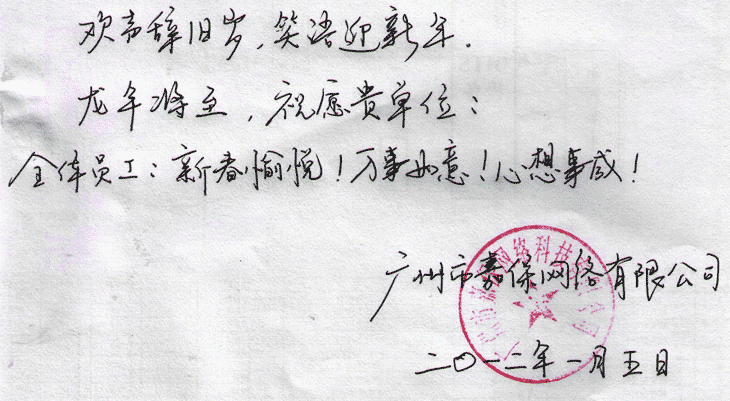 欢声辞旧岁，笑语迎新年．
龙年将至，祝愿贵单位：
全体员工：新春愉悦！万事如意！心想事成！
广州市嘉保网络有限公司
网络科技
二〇一二年一月五日